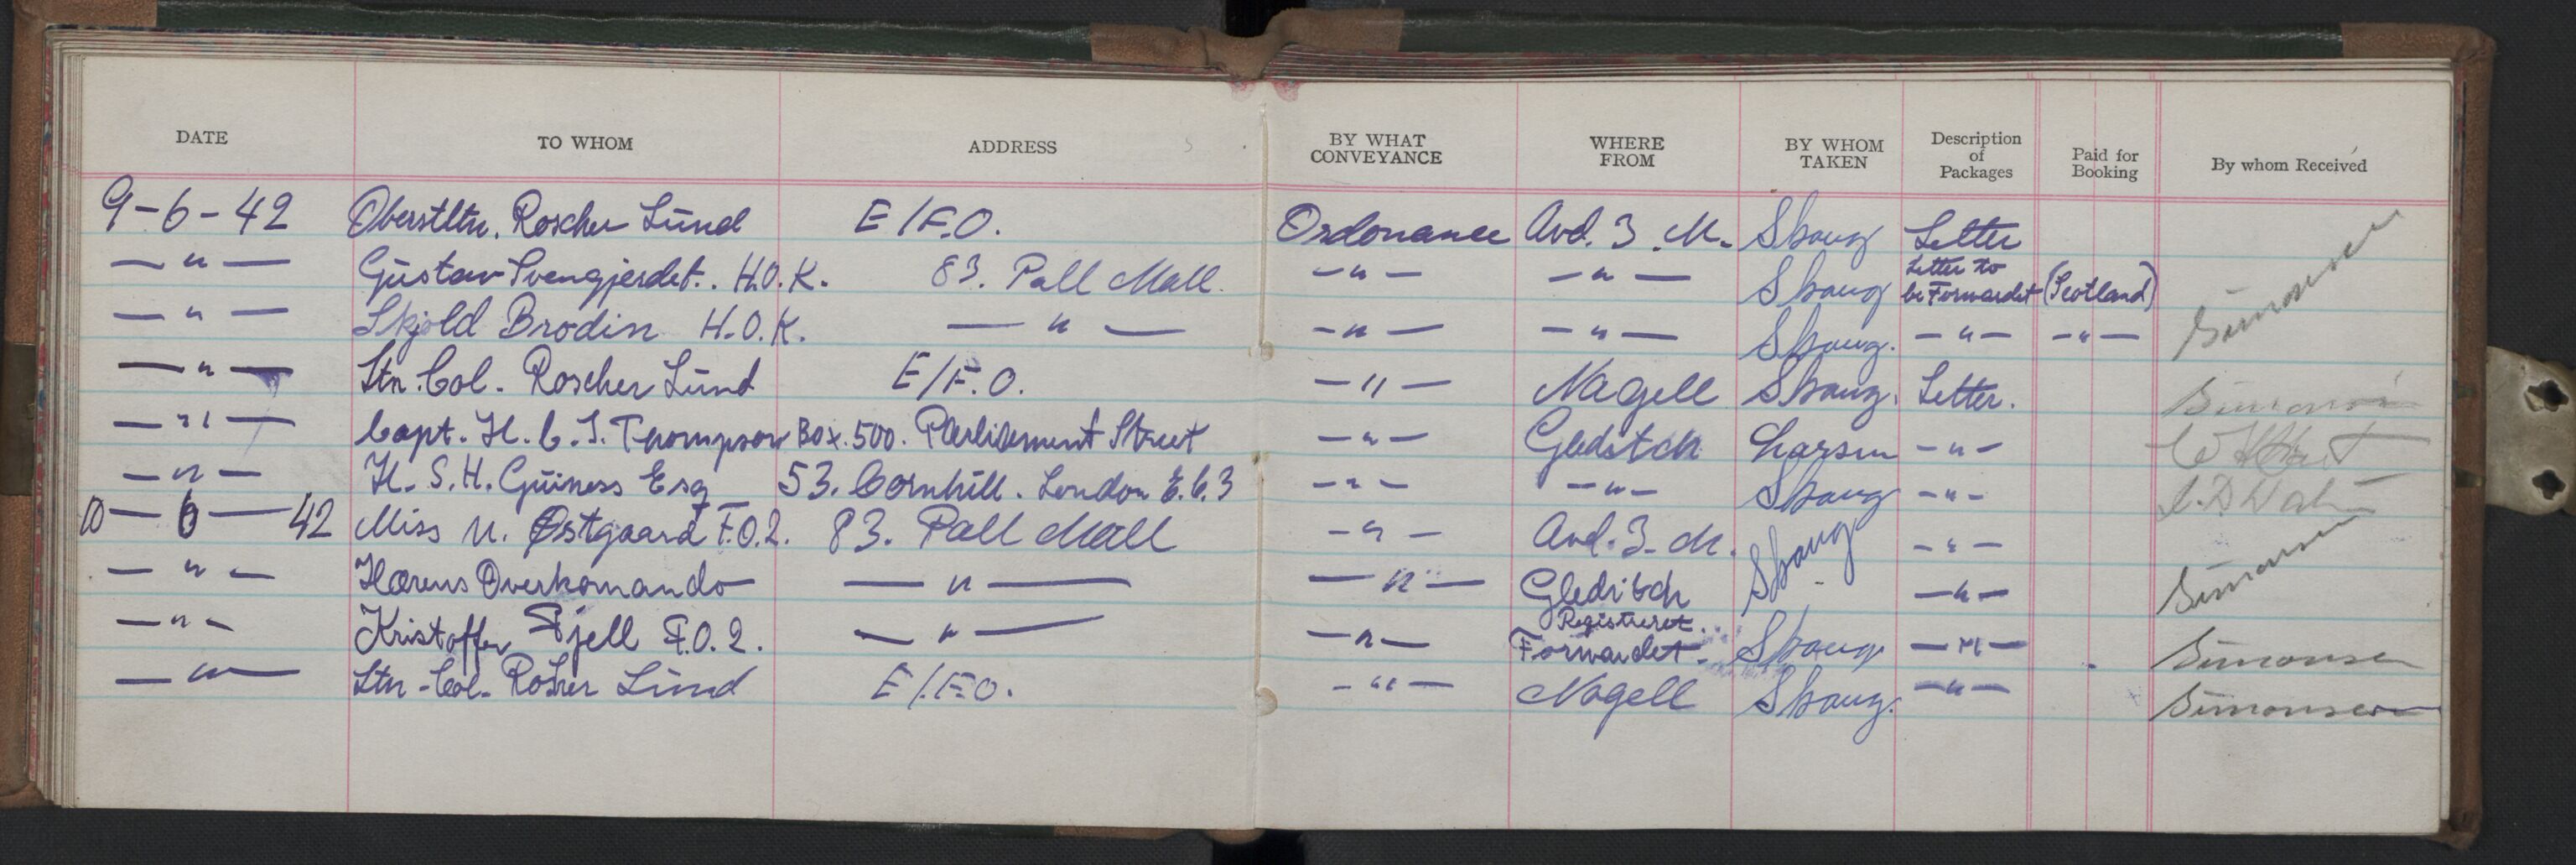 DATE TO WHOM ADDRESS BY WHAT CONVEYANCE WHERE FROM BY WHOM TAKEN Description of Packages Paid for Booking By whom Received
9-6-42 Oberstltn. Roscher Lund E/F.O. Ordonance Avd. 3. M. Skaug Letter Simonsen
—"— Gustav Svengjerdet. H.O.K. 83. Pall Mall. —"— —"— Skaug Letter to be Forwardet (Scotland)
—"— Skjold Brodin H.O.K. —"— —"— —"— Skaug. —"— —"—
—"— Ltn. Col. Roscher Lund E/F.O. —"— Nagell Skaug. Letter. Simonsen
—"— Capt. H. C. S. Thompson Box. 500. Parliament Street —"— Gleditch Larsen —"—
—"— H. S. H. Guiness Esq 53. Cornhill. London E.C.3 —"— —"— Skaug —"—
10—6—42 Miss U. Østgaard F.O.2. 83. Pall Mall —"— Avd. 3. M. Skaug —"— Simonsen
—"— Hærens Overkomando —"— —"— Gleditch —"—
—"— Kristoffer Fjell F.O.2. —"— —"— Registreret. Forwardet. Skaug —"— Simonsen
—"— Ltn-Col. Rosher Lund E/F.O. —"— Nagell Skaug. —"— Simonsen